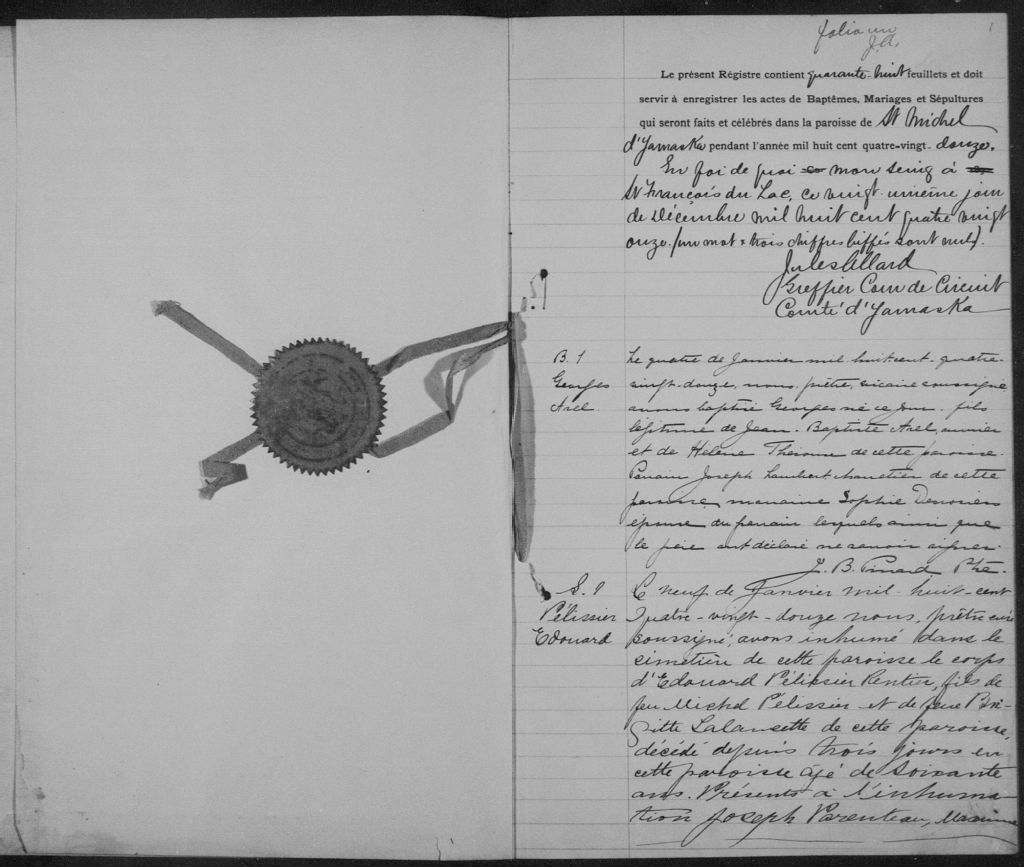 folio un
J.A.
1
Le présent Régistre contient quarante-huit feuillets et doit
servir à enregistrer les actes de Baptêmes, Mariages et Sépultures
qui seront faits et célébrés dans la paroisse de St Michel
d'Yamaska pendant l'année mil huit cent quatre-vingt- douze.
En foi de quoi mon seing à
St François du Lac, ce vingt-unième jour
de Décembre mil huit cent quatre vingt
onze. (un mot & trois chiffres biffés sont nuls).
Jules Allard
Greffier Cour de Circuit
Comté d'Yamaska
B. 1
Georges
Arel.
Le quatre de Janvier mil-huit-cent-quatre-
vingt-douze, nous, prêtre, vicaire soussigné
avons baptisé Georges né ce jour, fils
légitime de Jean-Baptiste Arel,
et de Hélène Théroux de cette paroisse.
Parrain Joseph Lambert de cette
paroisse, marraine Sophie
épouse du parrain lesquels ainsi que
le père ont déclaré ne savoir signer.
J. B. Pinard Ptre.
S. 1
Pélissier
Edouard
Le neuf de Janvier mil-huit-cent
quatre-vingt-douze nous, prêtre curé
soussigné, avons inhumé dans le
cimetière de cette paroisse le corps
d'Edouard Pélissier Rentier, fils de
feu Michel Pélissier et de feue Bri-
gitte Salancette de cette paroisse,
décédé depuis trois jours en
cette paroisse âgé de soixante
ans. Présents à l'inhuma-
tion Joseph Parenteau, Maxime